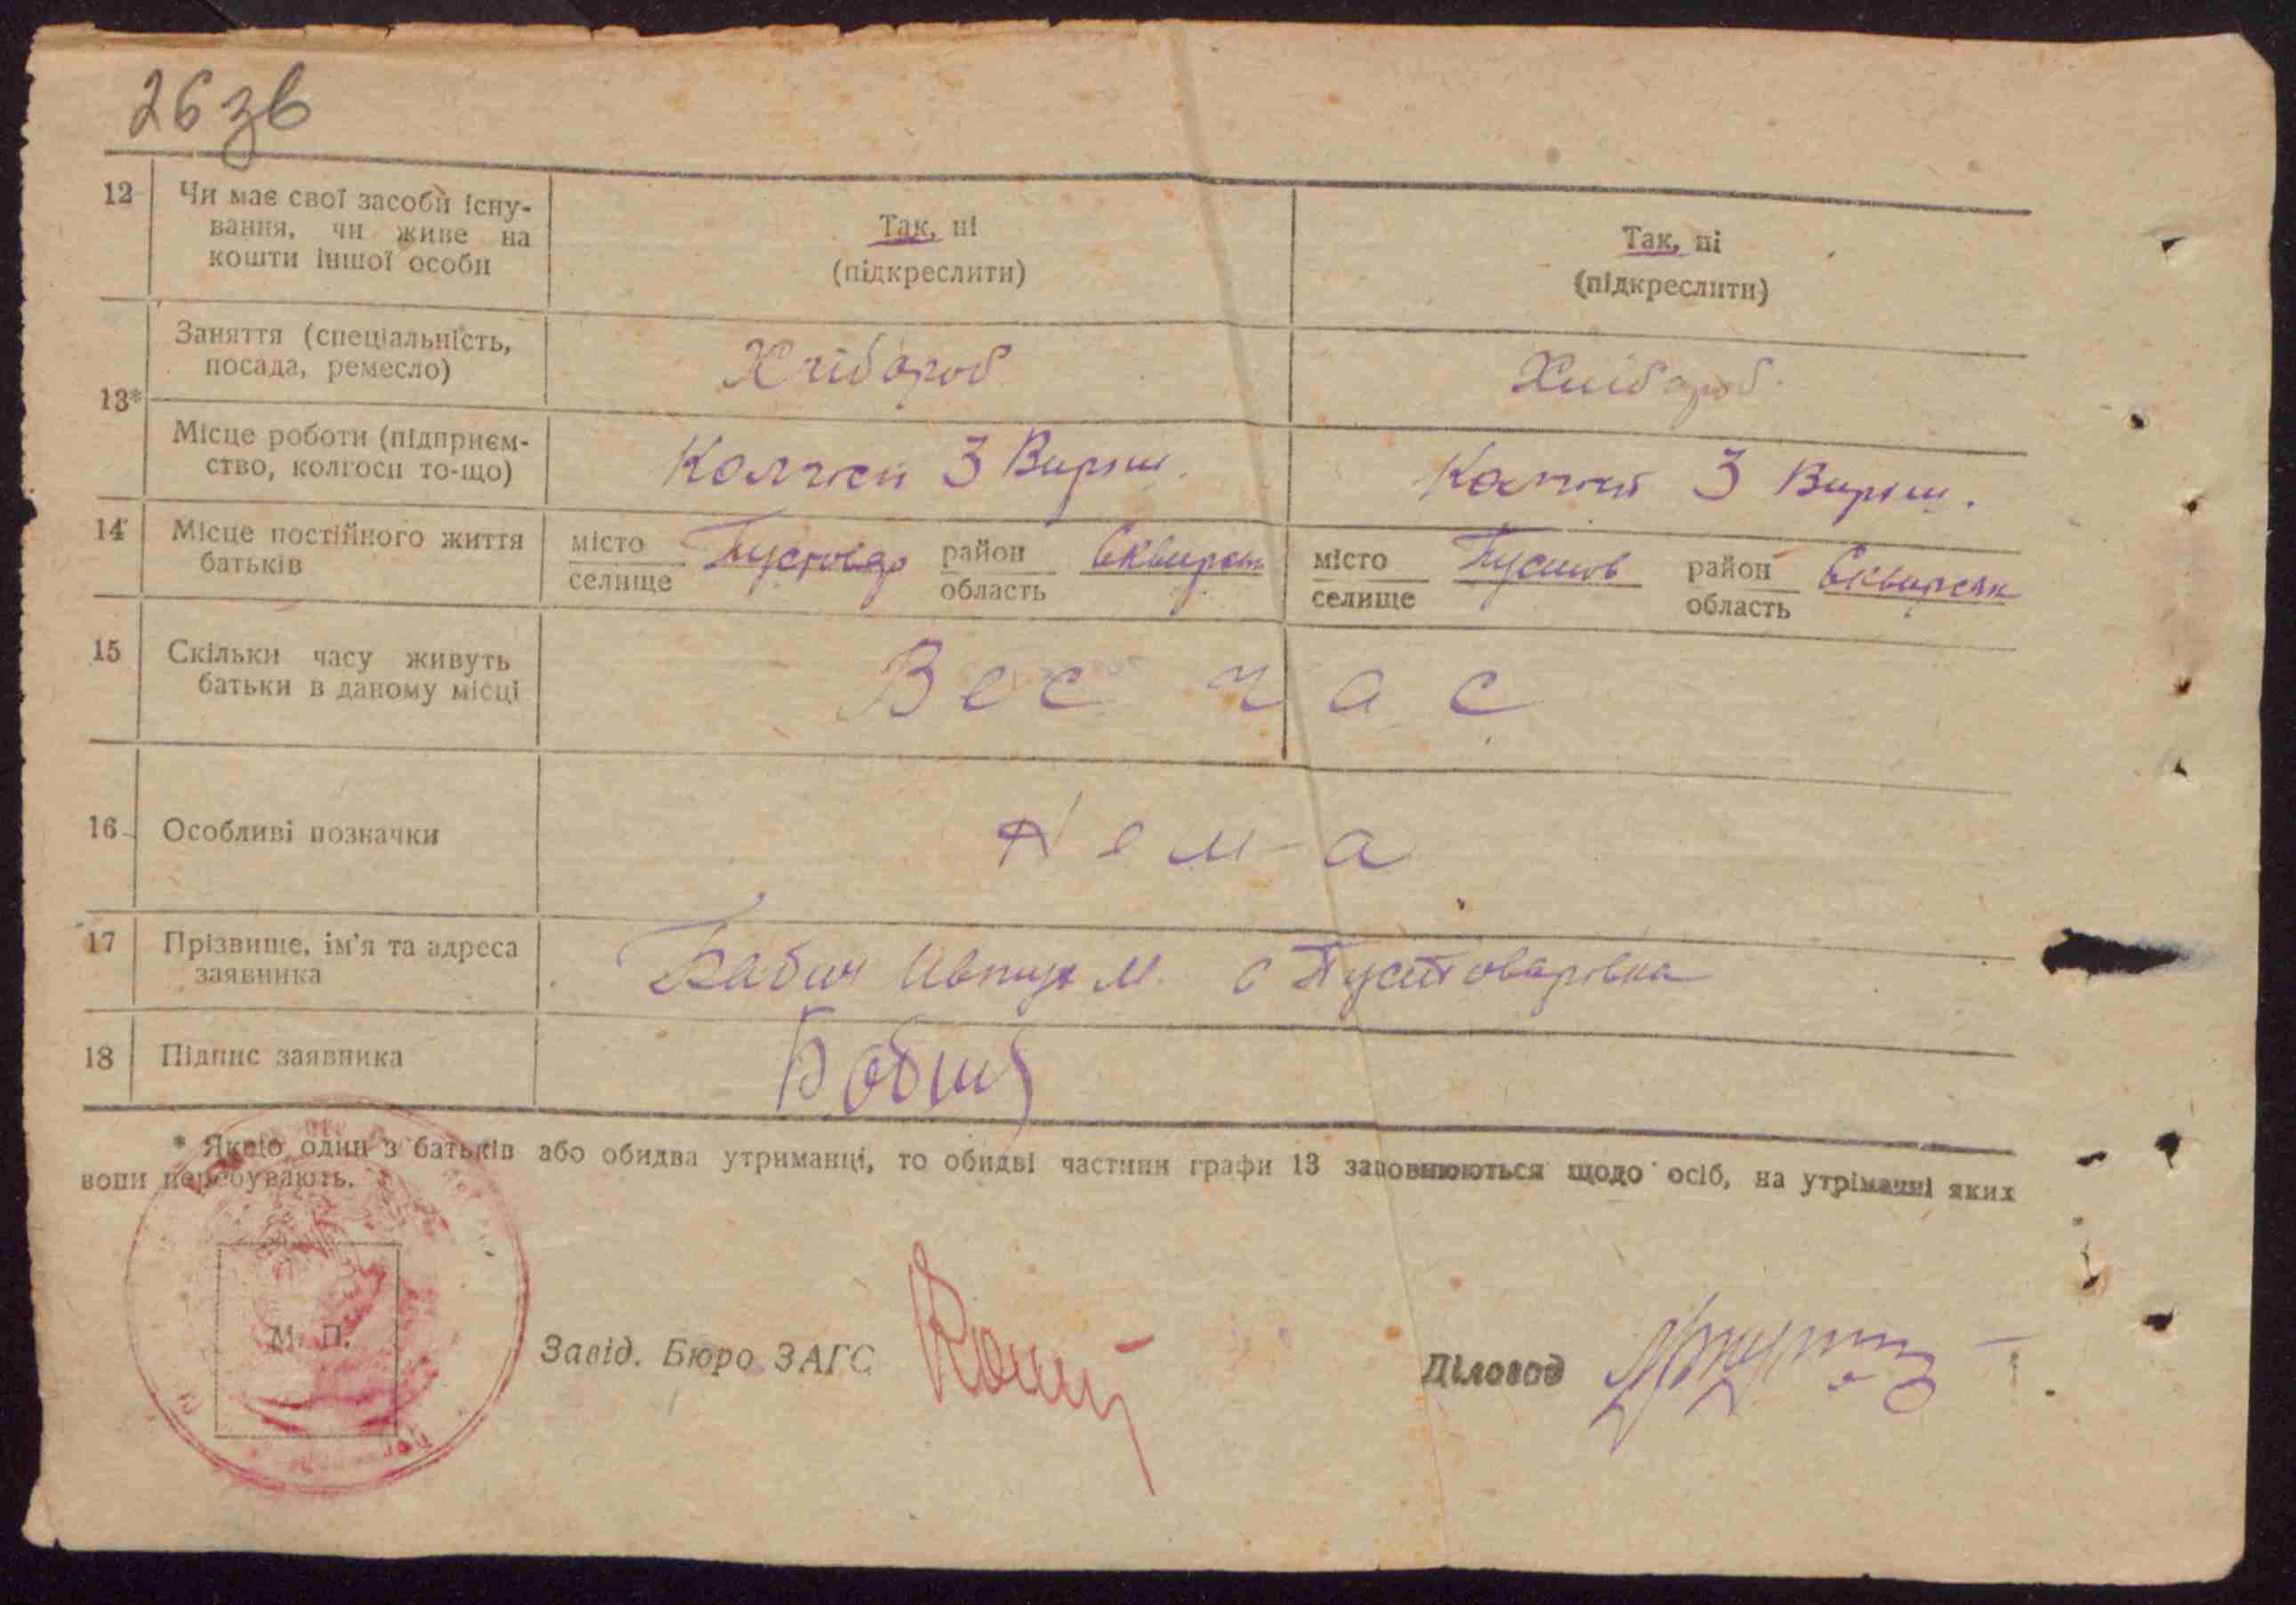 26 зв
12 Чи має свої засоби існу-
вання, чи живе на
кошти іншої особи
Так, ні
(підкреслити)
Так, ні
(підкреслити)
13*
Заняття (спеціальність,
посада, ремесло)
Хлібороб
Хлібороб.
Місце роботи (підприєм-
ство, колгосп то-що)
Колгосп 3 Виріш.
Колгосп 3 Виріш.
14 Місце постійного життя
батьків
місто
селище
Пустовар
район
область
Сквирськ
місто
селище
Пустов
район
область
Сквирськ
15 Скільки часу живуть
батьки в даному місці
Вес час
16 Особливі позначки
Нема
17 Прізвище, ім'я та адреса
заявника
Бабич М. с Пустоварівка
18 Підпис заявника
Бабич
* Якщо один з батьків або обидва утриманці, то обидві частини графи 13 заповнюються щодо осіб, на утріманні яких
вони перебувають.
М. П.
Завід. Бюро ЗАГС
Діловод